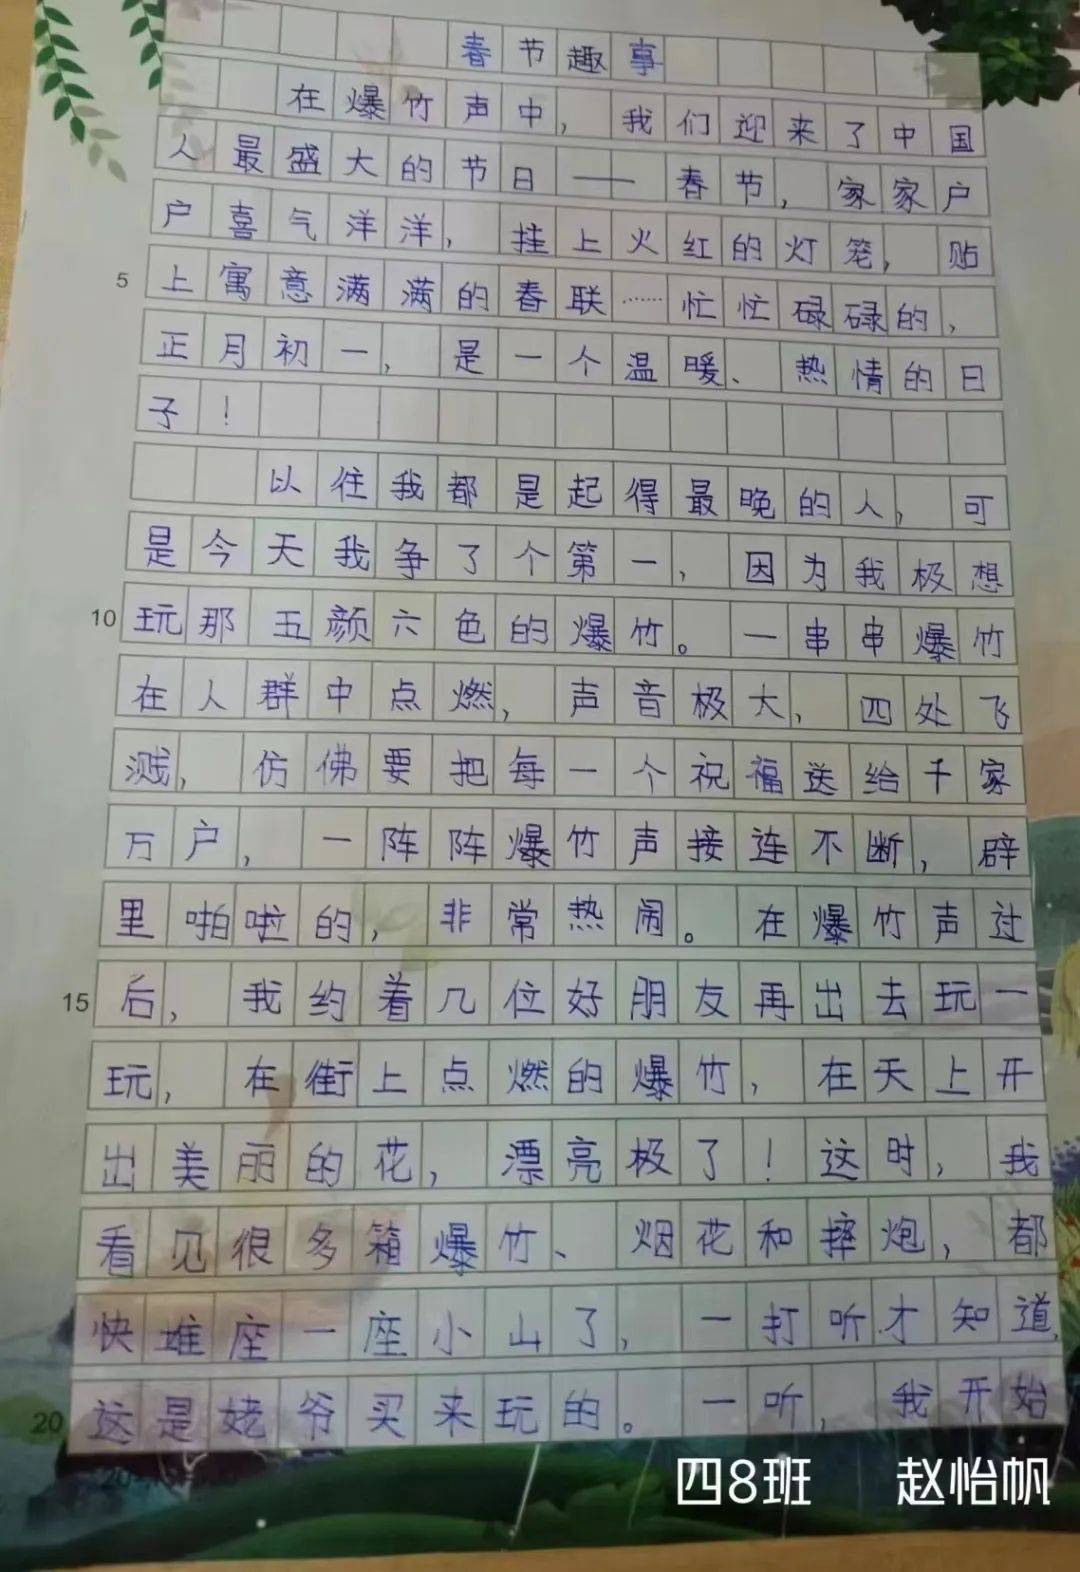 春节趣事
在爆竹声中，我们迎来了中国
人最盛大的节日——春节，家家户
户喜气洋洋，挂上火红的灯笼，贴
5 上寓意满满的春联……忙忙碌碌的，
正月初一，是一个温暖、热情的日
子！
以住我都是起得最晚的人，可
是今天我争了个第一，因为我极想
10 玩那五颜六色的爆竹。一串串爆竹
在人群中点燃，声音极大，四处飞
溅，仿佛要把每一个祝福送给千家
万户，一阵阵爆竹声接连不断，辟
里啪啦的，非常热闹。在爆竹声过
15 后，我约着几位好朋友再出去玩一
玩，在街上点燃的爆竹，在天上开
出美丽的花，漂亮极了！这时，我
看见很多箱爆竹、烟花和摔炮，都
快堆座一座小山了，一打听才知道，
20 这是姥爷买来玩的。一听，我开始
四8班 赵怡帆